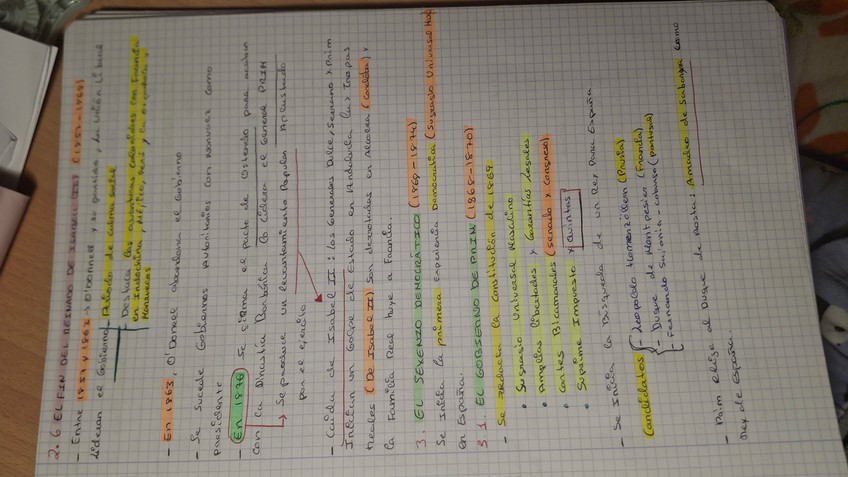 2.6 EL FIN DEL REINADO DE ISABEL II (1857-1868)
- Entre 1857 y 1863 → O'Donnell y su partido, la unión liberal
lideran el Gobierno
Periodo de calma
Destaca las aventuras coloniales con Francia
en Indochina, México,
Marruecos
- En 1863, O'Donnel abandona el Gobierno
- Se sucede Gobiernos Autoritarios con Narváez como
presidente
- En 1876 Se firma el pacto de Ostende para acabar
con la Dinastía Borbónica lo lidera el General PRIM
→ Se produce un levantamiento Popular Aplastado
por el ejército
- Caída de Isabel II: los Generales Dulce, Serrano y Prim
Inician un Golpe de Estado en Andalucía las tropas
Reales (De Isabel II) son derrotadas en Alcolea y
la Familia Real huye a Francia.
3. EL SEXENIO DEMOCRÁTICO (1868-1874)
Se Inicia la primera experiencia Democrática (Sufragio Universal
en España.
3.1. EL GOBIERNO DE PRIM (1868-1870)
- Se redacta la Constitución de 1869
• Sufragio Universal Masculino
• Amplias libertades y Garantías Legales
• Cortes Bicamerales (Senado y Congreso)
• Suprime Impuesto y quintas
- Se Inicia la Búsqueda de un Rey para España
Candidatos
- Leopoldo Homenzollern (Prusia)
- Duque de Montpesier (Francia)
- Fernando Sajonia-Coburgo
- Prim elige al Duque de Aosta: Amadeo de Saboya como
Rey de España